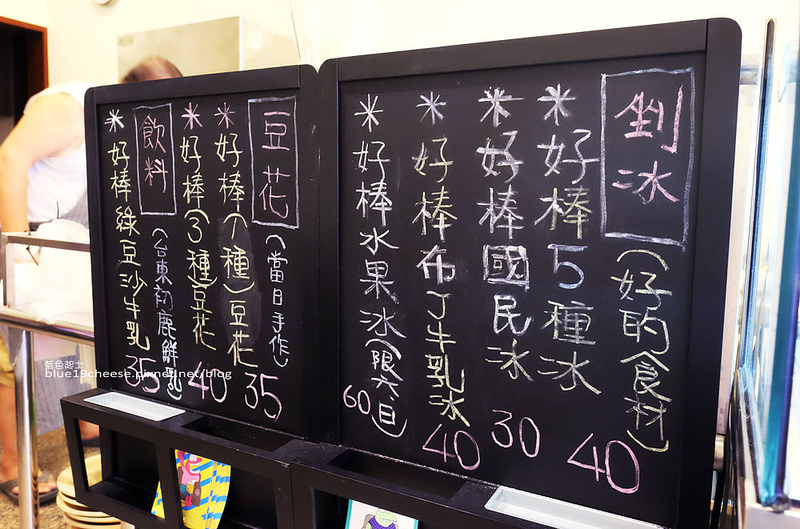 剉冰
(好的食材)
*好棒5種冰
40
*好棒國民冰
30
*好棒布丁牛乳冰
40
*好棒水果冰(限六日)
60
豆花
(當日手作)
*好棒(1種)豆花
35
*好棒(3種)豆花
40
飲料
(台東初鹿鮮乳)
*好棒綠豆沙牛乳
35
藍色起士
blue19cheese.pixnet.net/blog